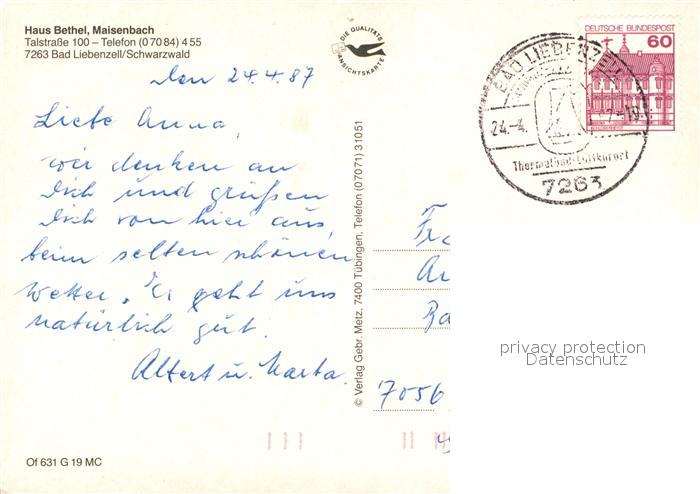 Haus Bethel, Maisenbach
Talstraße 100 – Telefon (0 70 84) 4 55
7263 Bad Liebenzell/Schwarzwald
DIE QUALITÄTS
ANSICHTSKARTE
DEUTSCHE BUNDESPOST
60
BAD LIEBENZELL
24.-4. 87-19
Thermalbad-Luftkurort
7263
den 24.4.87
Liebe Anna,
wir denken an
Dich und grüßen
Dich von hier aus,
beim selten schönen
Wetter. Es geht uns
natürlich gut.
Albert u. Marta.
© Verlag Gebr. Metz, 7400 Tübingen, Telefon (07071) 31051
7056
privacy protection
Datenschutz
Of 631 G 19 MC